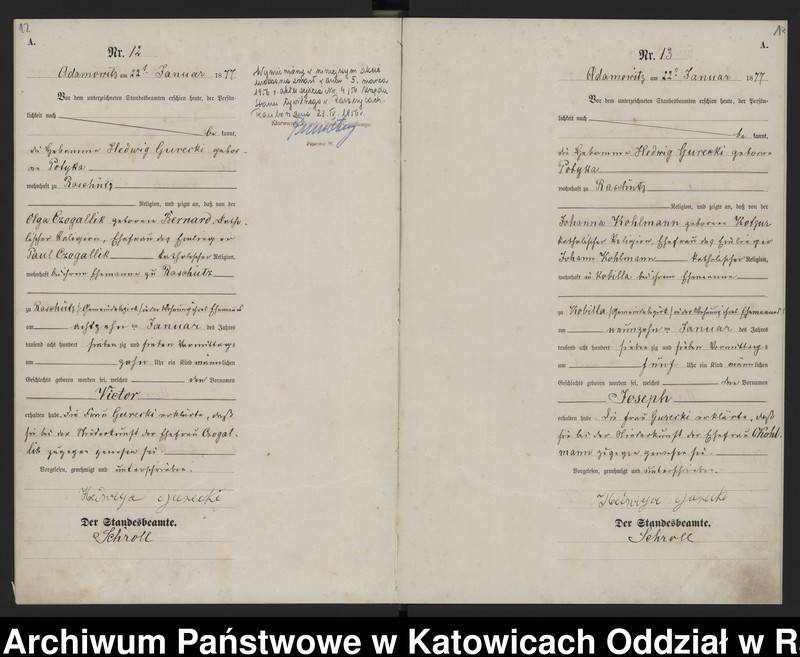 12
A.
Nr. 12
Adamowitz am 22t Januar 1877
Vor dem unterzeichneten Standesbeamten erschien heute, der Persön-
lichkeit nach
be kannt,
die Hebamme Hedwig Gurecki gebor-
ne Potyka
wohnhaft zu Raschütz
Religion, und zeigte an, daß von der
Olga Czogallik geborenen Bernard, katho-
lischer Religion, Ehefrau des Einliegers
Paul Czogallik katholischer Religion,
wohnhaft bei ihrem Ehemanne zu Raschütz
zu Raschütz (Gemeindebezirk) in der Wohnung ihres Ehemanns
am achtzehn ten Januar des Jahres
tausend acht hundert sieben zig und sieben Vormittags
um zehn Uhr ein Kind männlichen
Geschlechts geboren worden sei, welches den Vornamen
Victor
erhalten habe. Die Frau Gurecki erklärte, daß
sie bei der Niederkunft der Ehefrau Czogal-
lik zugegen gewesen sei.
Vorgelesen, genehmigt und unterschrieben.
Hedwiga Gurecki
Der Standesbeamte.
Schroll
Wymieniony w niniejszym akcie
zmarł w dniu 5. marca
1956 r. akt zejścia No. 4/56 Urzędu
Stanu Cywilnego w
Racibórz dnia 1956
Kierownik
13
A.
Nr. 13
Adamowitz am 22t Januar 1877
Vor dem unterzeichneten Standesbeamten erschien heute, der Persön-
lichkeit nach
be kannt,
die Hebamme Hedwig Gurecki geborne
Potyka
wohnhaft zu Raschütz
Religion, und zeigte an, daß von der
Johanna Kohlmann geborenen Kotzur
katholischer Religion, Ehefrau des Einlieger
Johann Kohlmann katholischer Religion,
wohnhaft zu Kobilla bei ihrem Ehemanne
zu Kobilla (Gemeindebezirk) in der Wohnung ihres Ehemannes
am neunzehn ten Januar des Jahres
tausend acht hundert sieben zig und sieben Vormittags
um fünf Uhr ein Kind männlichen
Geschlechts geboren worden sei, welches den Vornamen
Joseph
erhalten habe. Die Frau Gurecki erklärte, daß
sie bei der Niederkunft der Ehefrau Kohl-
mann zugegen gewesen sei.
Vorgelesen, genehmigt und unterschrieben.
Hedwiga Gurecki
Der Standesbeamte.
Schroll
Archiwum Państwowe w Katowicach Oddział w R